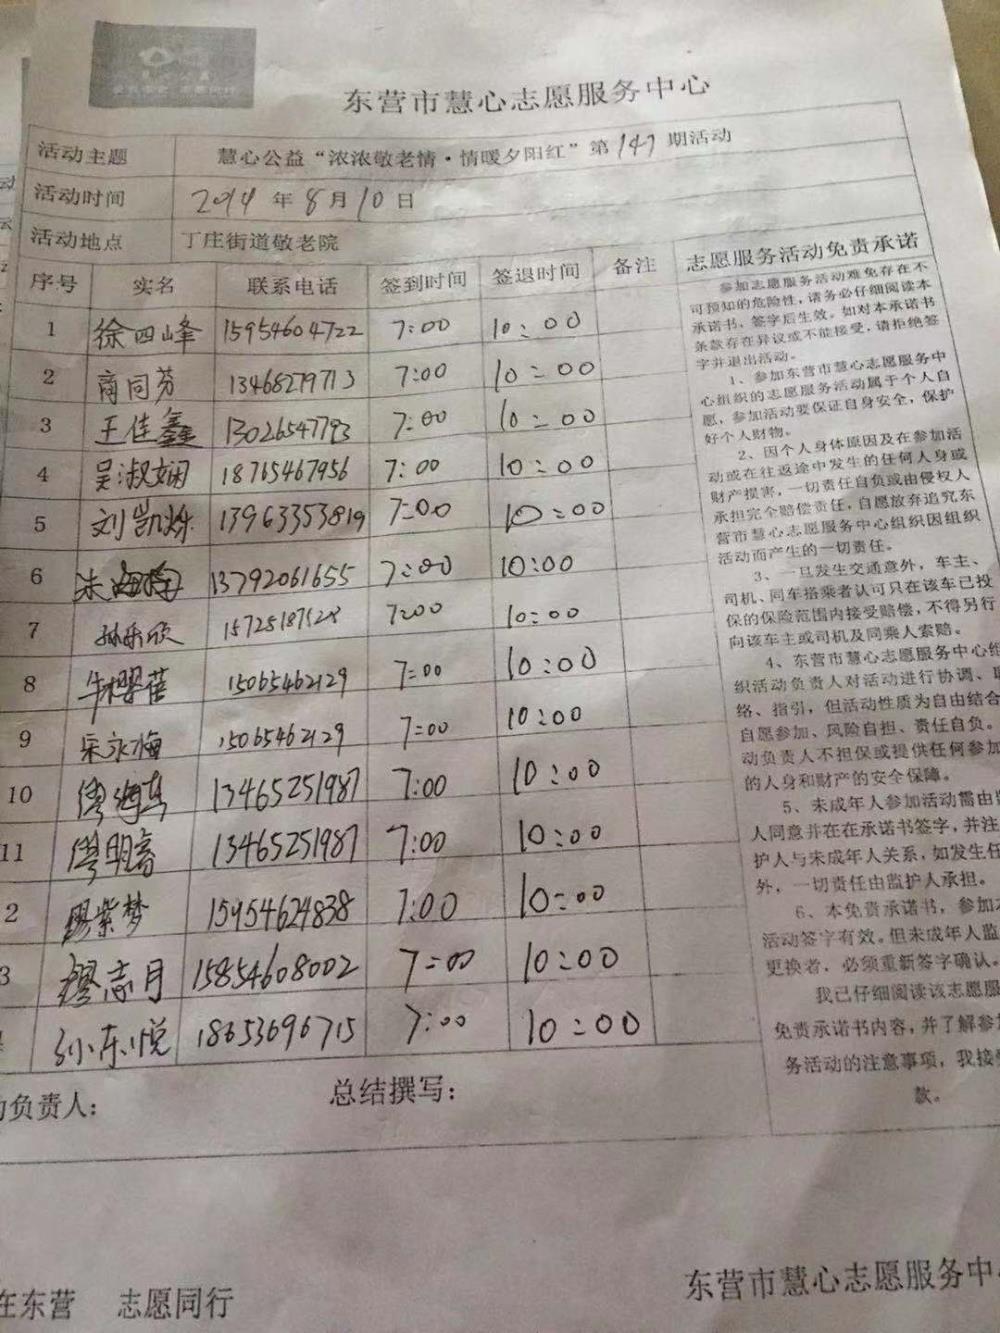 东营市慧心志愿服务中心
活动主题 慧心公益“浓浓敬老情·情暖夕阳红”第147期活动
活动时间 2014年8月10日
活动地点 丁庄街道敬老院
序号 实名 联系电话 签到时间 签退时间 备注
1 徐四峰 15954604722 7:00 10:00
2 商同芬 13468279713 7:00 10:00
3 王佳鑫 13026547793 7:00 10:00
4 吴淑娴 18765467956 7:00 10:00
5 刘凯烁 13963353819 7:00 10:00
6 朱海梅 13792061655 7:00 10:00
7 孙乐欣 15725187528 7:00 10:00
8 牛樱蓓 15065462129 7:00 10:00
9 宋永梅 15065462129 7:00 10:00
10 13465251987 7:00 10:00
11 13465251987 7:00 10:00
2 紫梦 15954624838 7:00 10:00
3 廖志月 15854608002 7:00 10:00
孙东悦 18653696715 7:00 10:00
负责人： 总结撰写：
志愿服务活动免责承诺
参加志愿服务活动难免存在不
可预知的危险性，请务必仔细阅读本
承诺书，签字后生效。如对本承诺书
条款存在异议或不能接受，请拒绝签
字并退出活动。
1、参加东营市慧心志愿服务中
心组织的志愿服务活动属于个人自
愿，参加活动要保证自身安全，保护
好个人财物。
2、因个人身体原因及在参加活
动或在往返途中发生的任何人身或
财产损害，一切责任自负或由侵权人
承担完全赔偿责任，自愿放弃追究东
营市慧心志愿服务中心组织因组织
活动而产生的一切责任。
3、一旦发生交通意外，车主、
司机、同车搭乘者认可只在该车已投
保的保险范围内接受赔偿，不得另行
向该车主或司机及同乘人索赔。
4、东营市慧心志愿服务中心组
织活动负责人对活动进行协调、联
络、指引，但活动性质为自由结合
自愿参加、风险自担、责任自负。
动负责人不担保或提供任何参加
的人身和财产的安全保障。
5、未成年人参加活动需由监
人同意并在在承诺书签字，并注
护人与未成年人关系，如发生任
外，一切责任由监护人承担。
6、本免责承诺书，参加本
活动签字有效。但未成年人监
更换者，必须重新签字确认。
我已仔细阅读该志愿服
免责承诺书内容，并了解参加
务活动的注意事项，我接受
款。
在东营 志愿同行
东营市慧心志愿服务中心